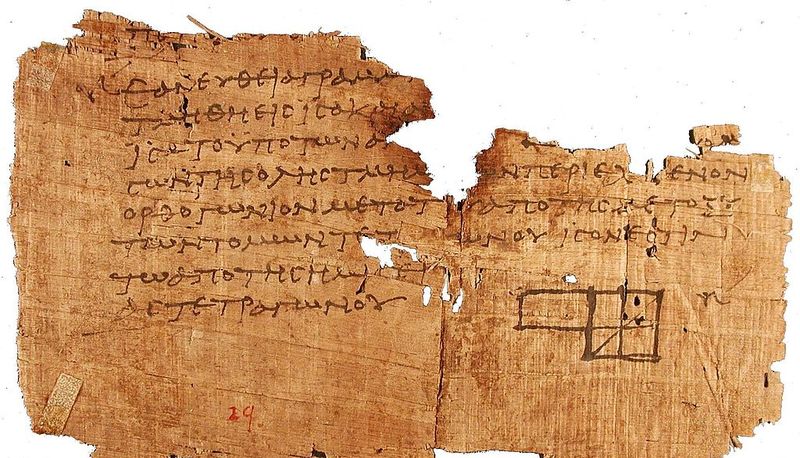 ΕΑΝ ΕΥΘΕΙΑ ΓΡΑΜ
ΤΜΗΘΗ ΕΙϹ ΙϹΑ ΚΑΙ Α
ΙϹΑ ΤΟ ΥΠΟ ΤΩΝ Α
ϹΩΝ ΤΗϹ ΟΛΗϹ ΤΜΗΜ ΩΝ ΠΕΡΙΕΧ ΜΕΝΟΝ
ΟΡΘΟΓΩΝΙΟΝ ΜΕΤΑ ΤΟΥ ΑΠΟ ΤΗϹ ΜΕΤΟΞΥ
ΤΩΝ ΤΟΜΩΝ ΤΕΤ ΩΝΟΥ ΙϹΟΝ ΕϹΤΙΝ
ΤΩ ΑΠΟ ΤΗϹ ΗΜΙϹΕΙ
ΑϹ ΤΕΤΡΑΓΩΝΟΥ
29.